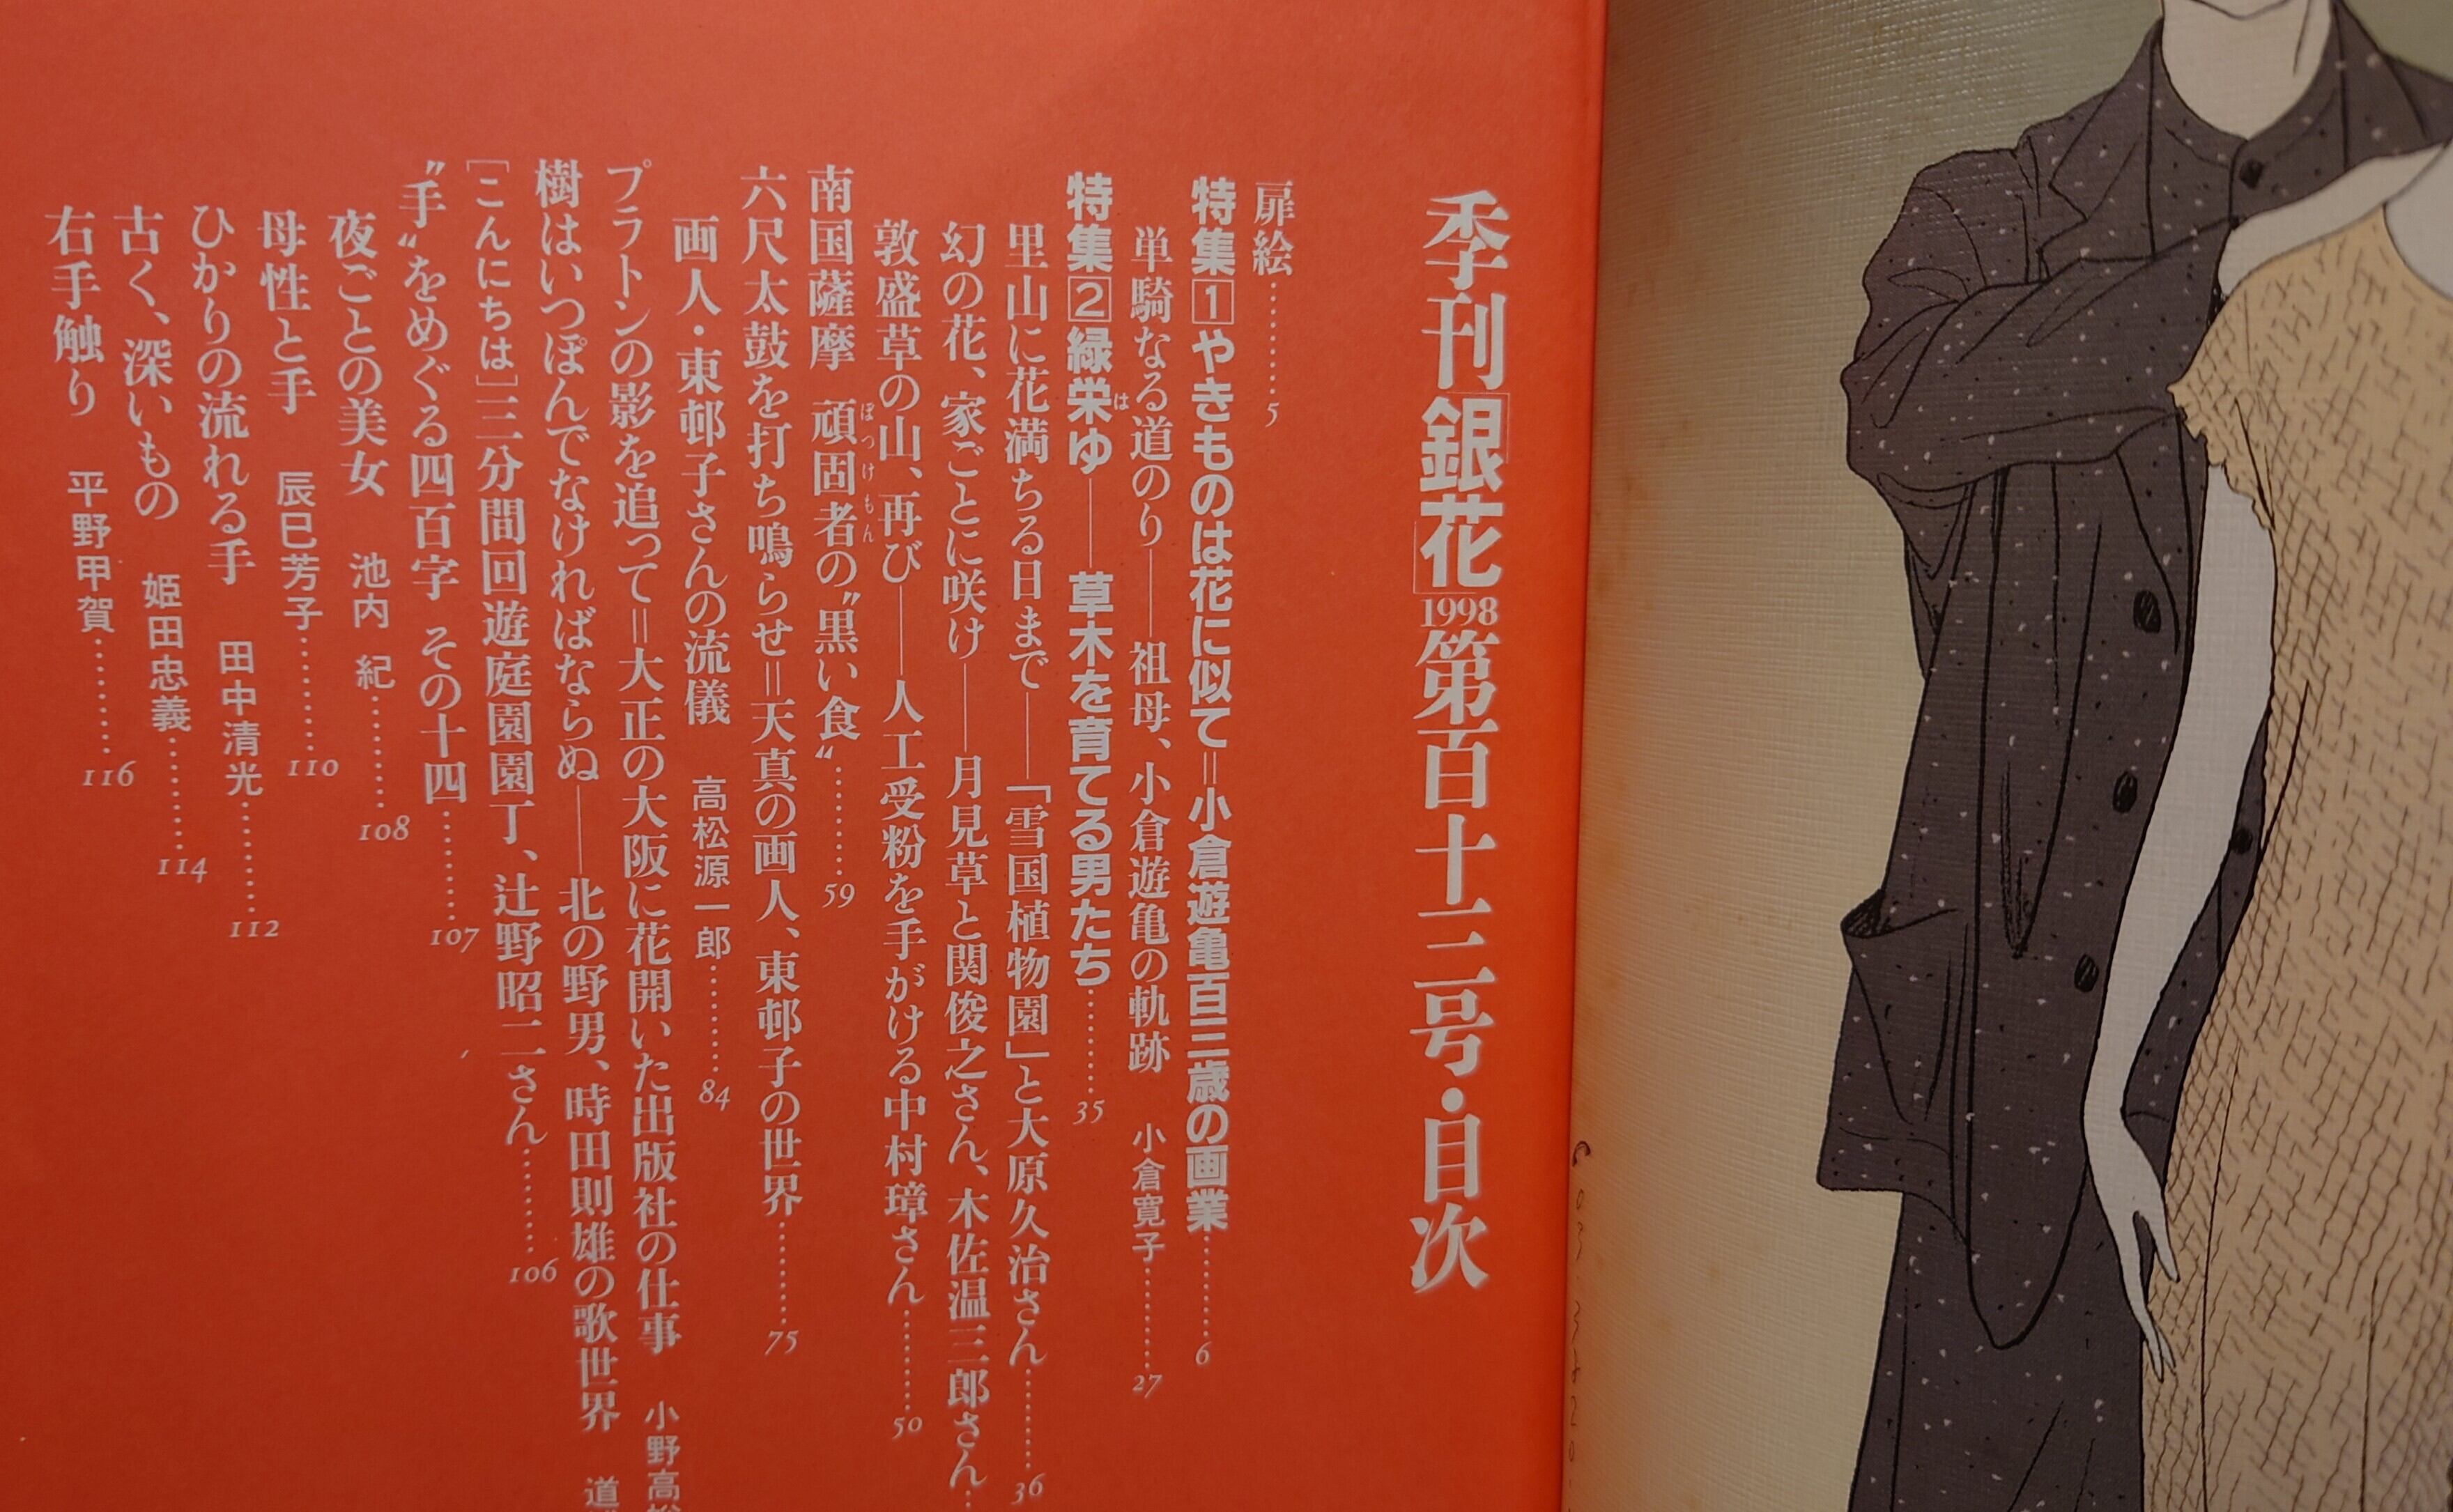 季刊「銀花」1998第百十三号・目次
扉絵………5
特集1やきものは花に似て=小倉遊亀百三歳の画業………6
単騎なる道のり――祖母、小倉遊亀の軌跡 小倉寛子………27
特集2緑栄ゆ――草木を育てる男たち………35
は
里山に花満ちる日まで――「雪国植物園」と大原久治さん………36
幻の花、家ごとに咲け――月見草と関俊之さん、木佐温三郎さん…
敦盛草の山、再び――人工受粉を手がける中村璋さん………50
南国薩摩 頑固者の〝黒い食〟………59
ぼっけもん
六尺太鼓を打ち鳴らせ=天真の画人、東邨子の世界………75
画人・東邨子さんの流儀 高松源一郎………84
プラトンの影を追って=大正の大阪に花開いた出版社の仕事 小野高
樹はいつぽんでなければならぬ――北の野男、時田則雄の歌世界 道
[こんにちは]三分間回遊庭園園丁、辻野昭二さん………106
〝手〟をめぐる四百字 その十四………107
夜ごとの美女 池内 紀………108
母性と手 辰巳芳子………110
ひかりの流れる手 田中清光………112
古く、深いもの 姫田忠義………114
右手触り 平野甲賀………116